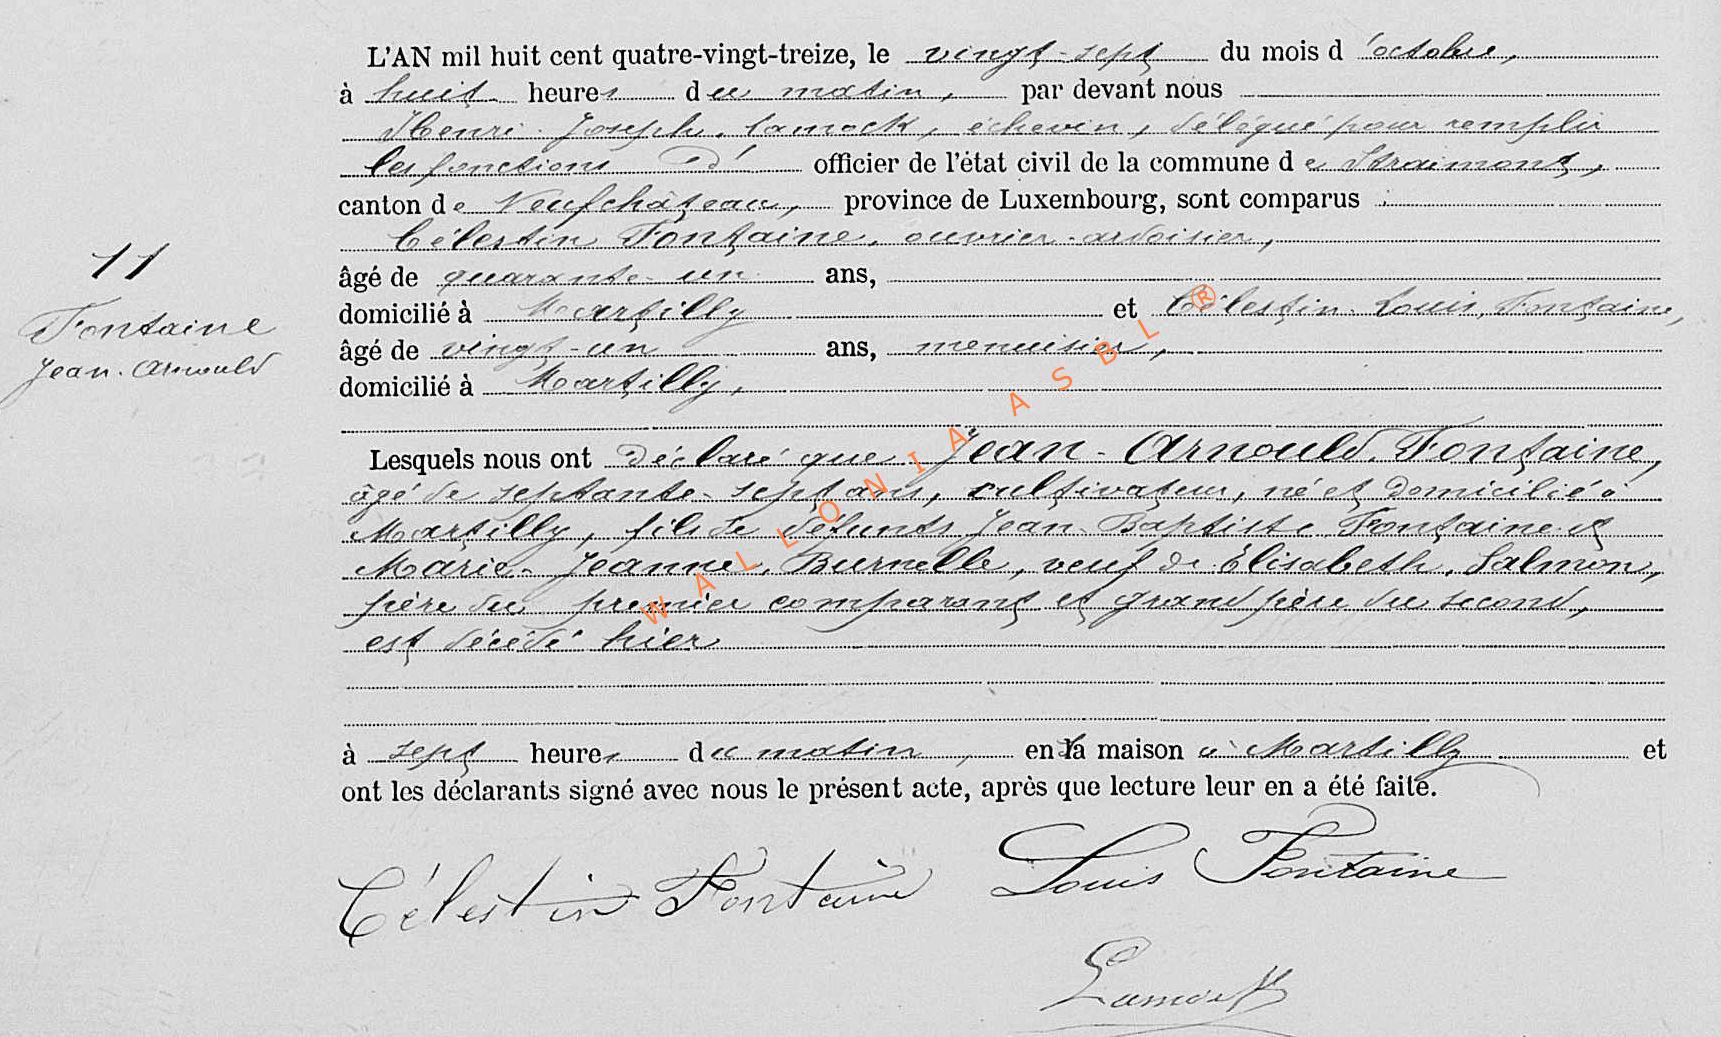 L'AN mil huit cent quatre-vingt-treize, le vingt-sept du mois d'octobre,
à huit heures du matin, par devant nous
Henri-Joseph Lamock, échevin, délégué pour remplir
les fonctions d' officier de l'état civil de la commune de Straimont,
canton de Neufchâteau, province de Luxembourg, sont comparus :
Célestin Fontaine, ouvrier-ardoisier,
11
âgé de quarante-un ans,
domicilié à Martilly et Célestin-Louis Fontaine,
Fontaine
âgé de vingt-un ans, menuisier,
Jean-Arnould
domicilié à Martilly,
Lesquels nous ont déclaré que Jean-Arnould Fontaine,
âgé de septante-sept ans, cultivateur, né et domicilié à
Martilly, fils de défunts Jean-Baptiste Fontaine et
Marie-Jeanne Burnelle, veuf de Élisabeth Salmon,
père du premier comparant et grand père du second,
est décédé hier
à sept heures du matin, en sa maison à Martilly et
ont les déclarants signé avec nous le présent acte, après que lecture leur en a été faite.
Célestin Fontaine Louis Fontaine
WALLONIA ASBL ®